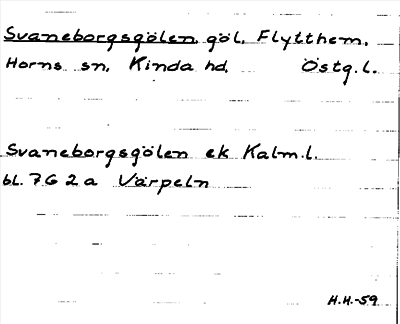 Svaneborgsgölen, göl, Flytthem,
Horns sn, Kinda hd, Östg.l.
Svaneborgsgölen ek Kalm.l.
bl. 7G 2a Värpeln
H.H.-59